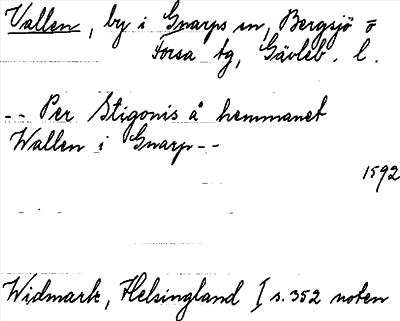 Vallen, by i Gnarps sn, Bergsjö o
Forsa tg, Gävleb. l.
-- Per Stigonis å hemmanet
Wallen i Gnarp --
1592
Widmark, Helsingland I s. 352 noten